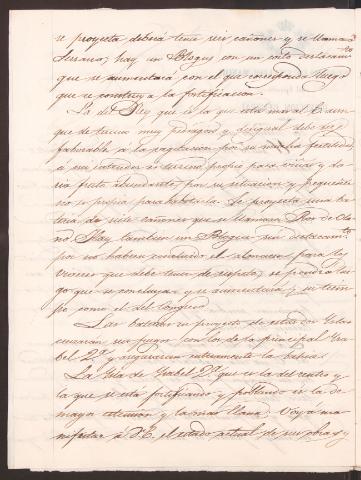 se proyecta deberá tener seis cañones y se llamará
Serrano; hay un Blogus con un corto destacamto
que se aumentará con el que corresponda luego
que se construya la fortificacion.
La del Rey que es la que está mas al E. aun
que de terreno muy pedregoso y desigual debe ser
favorable á la vegetacion por su mucha fertilidad,
á mi entender es terreno propio para viñas y da
ria fruto abundante, por su situacion y pequeñez
no es propia para habitarla. Se proyecta una ba
teria de siete cañones que se llamará Ros de Ola
no. Hay tambien un Blogus sin destacamto
por no haberse concluido el almacen para los
víveres que debe tener de repuesto, se pondrá lue
go que se concluya y se aumentará á su tiem
po como el del Congreso.
Las baterias en proyecto de estas dos Yslas
cruzarán sus fuegos con los de la principal Ysa
bel 2ª y asegurarán enteramente la bahia.
La Ysla de Ysabel 2ª que es la del centro y
la que se está fortificando y poblando es la de
mayor estension y la mas llana. Voy á ma
nifestar á V.E. el estado actual de sus obras y